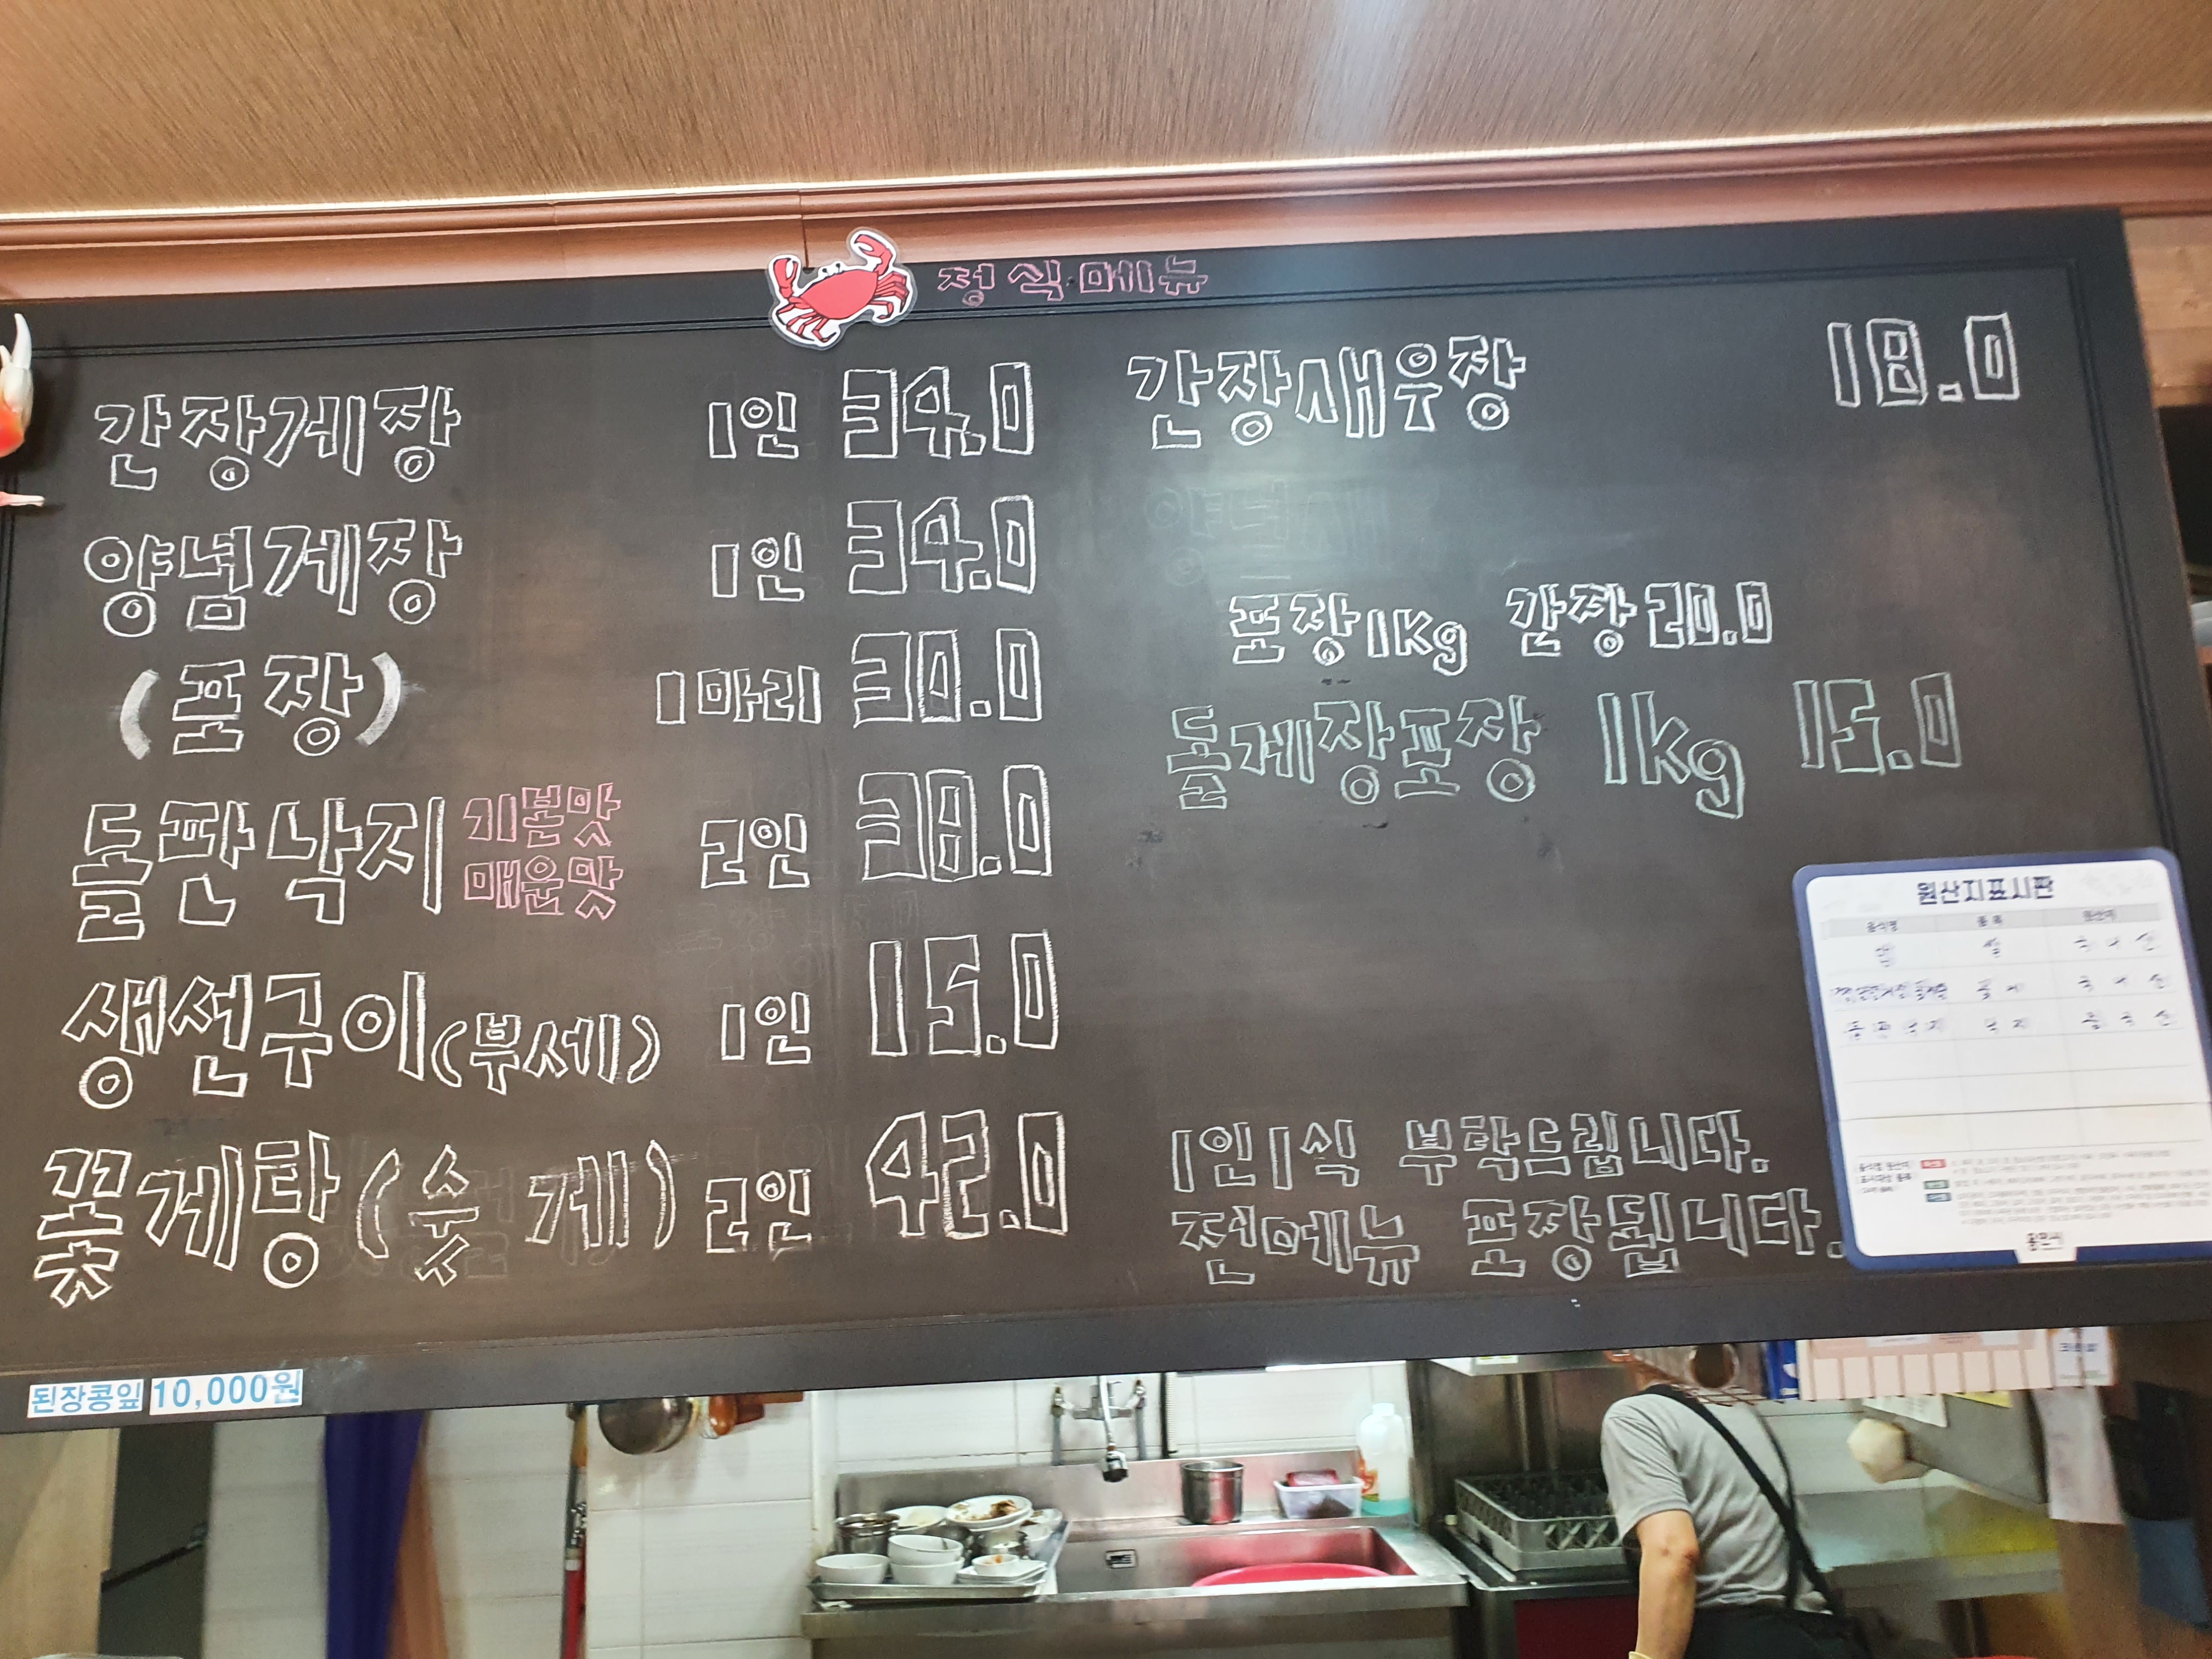 정식메뉴
간장게장 1인 34.0
양념게장 1인 34.0
(포장) 1마리 30.0
돌판낙지 기본맛 매운맛 2인 38.0
생선구이(부세) 1인 15.0
꽃게탕(숫게) 2인 42.0
간장새우장 18.0
포장1kg 간장20.0
돌게장포장 1kg 15.0
1인1식 부탁드립니다.
전메뉴 포장됩니다.
원산지표시판
음식명 품목 원산지
밥 쌀 국내산
국내산
돌판낙지 낙지 중국산
된장콩잎 10,000원